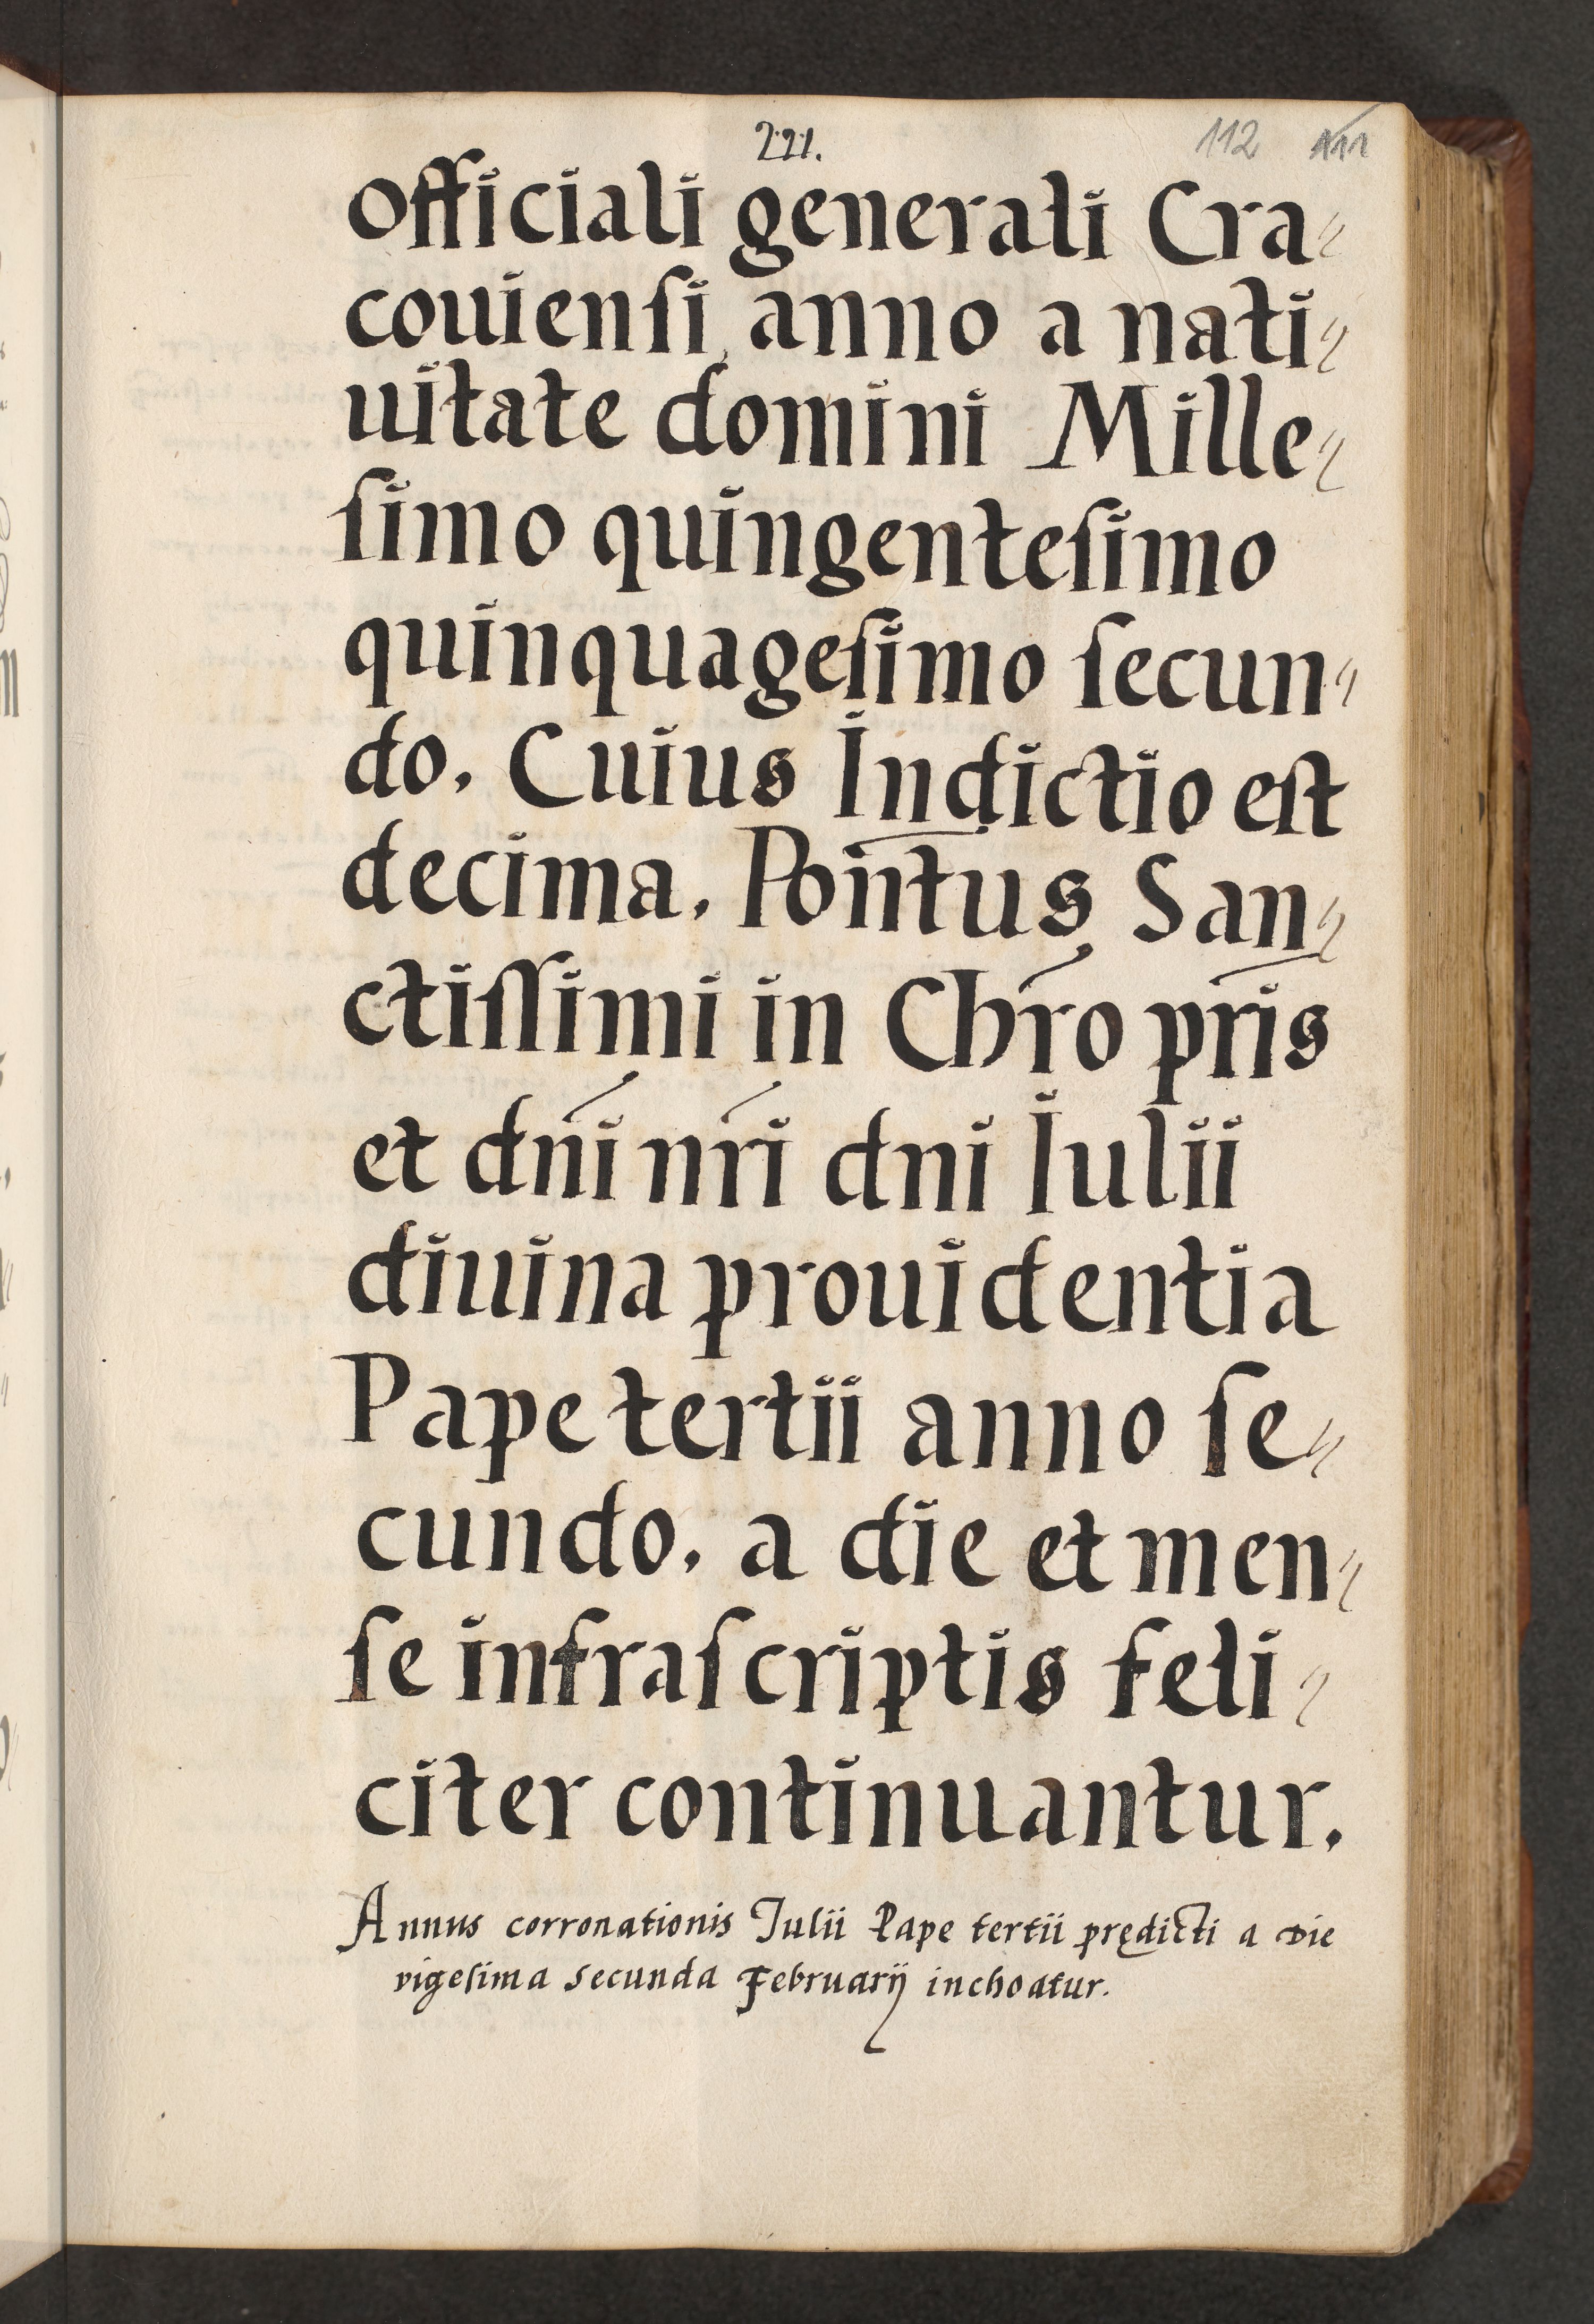 221.
112 111
officiali generali Cra⸗
couienſi, anno a nati⸗
uitate domini Mille⸗
ſimo quingenteſimo
quinquageſimo ſecun⸗
do. Cuius Indictio est
decima. Pon̄tus San⸗
ctiſſimi in Chr̄o pr̄is
et dn̄i nr̄i dni Iulii
diuina prouidentia
Pape tertii anno ſe⸗
cundo. a die et men⸗
ſe infraſcriptis feli⸗
citer continuantur.
Annus corronationis Iulii Pape tertii prędicti a Die
vigeſima secunda Februarij inchoatur.